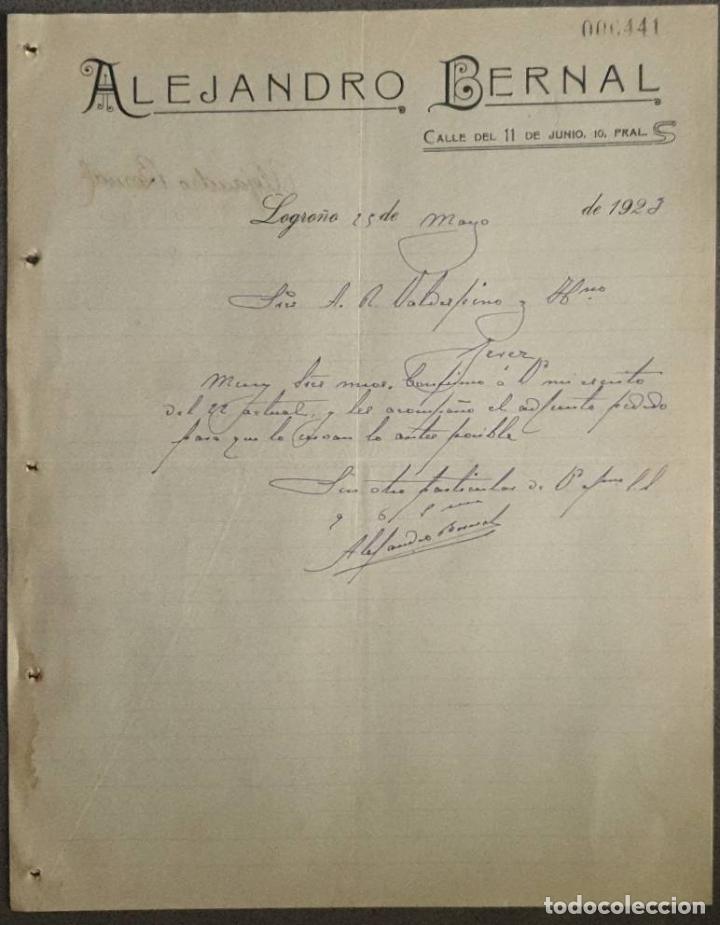 006441
ALEJANDRO BERNAL
CALLE DEL 11 DE JUNIO, 10, PRAL.
Logroño 25 de Mayo de 1923
Sres A. R. Valdespino y Hno
Jerez
Muy Sres mios. Confirmo á Vs mi escrito
del 22 actual, y les acompaño el adjunto pedido
para que lo sirvan lo antes posible
Sin otro particular de Vs
Alejandro Bernal
todocoleccion